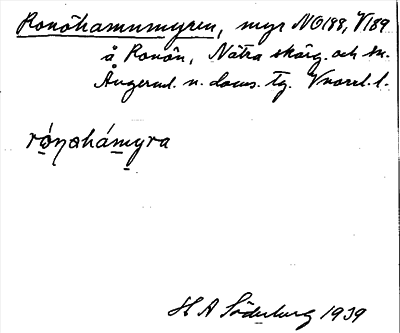 Ronöhamnmyren, myr NO188, V189
å Ronön, Nätra skärg. och sn.
Ångerml. n. doms. tg. Vnorrl. l.
rónǝhámyra
H A Söderberg 1939